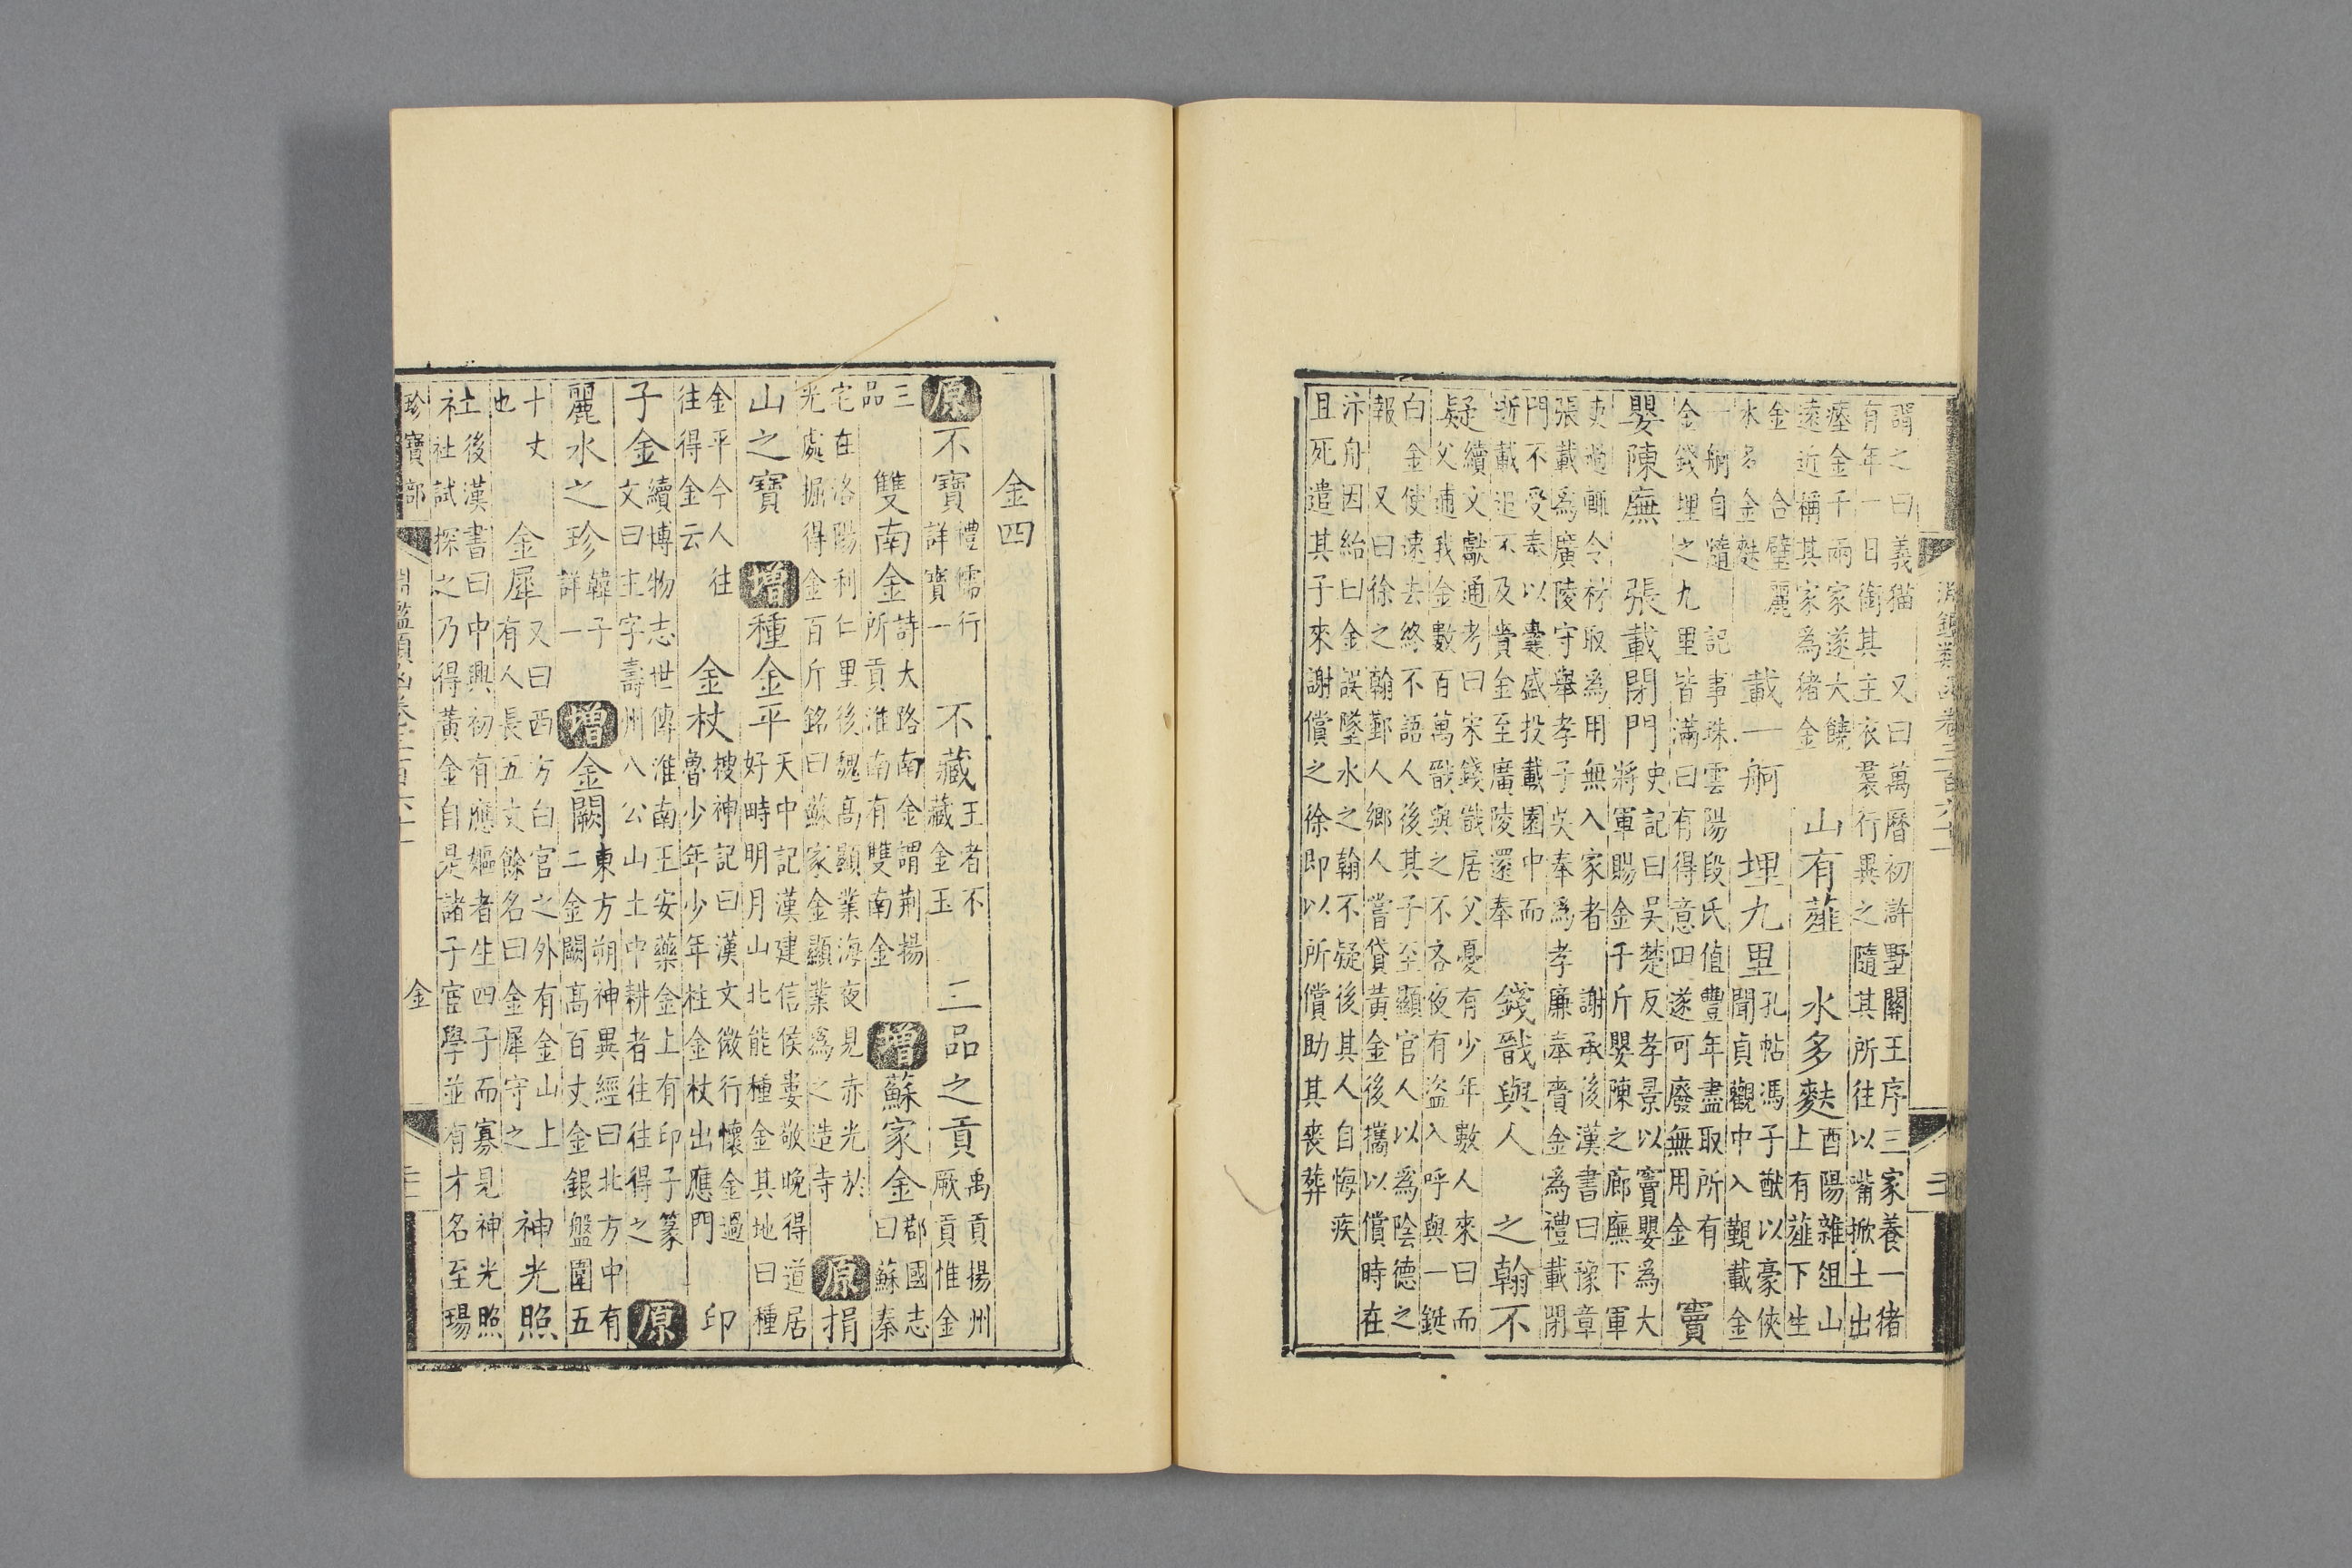 謂之曰義猫　又曰萬曆初許墅關王序三家養一猪
有年一日銜其主衣裠行異之隨其所往以嘴掀土出
瘞金千兩家遂大饒
遠近稱其家為猪金
山有薤　水多麩
酉陽雜俎山
上有薤下生
金　合璧麗
水名金麩
載一舸　埋九里
孔帖馮子猷以豪俠
聞貞觀中入覲載金
一舸自隨　記事珠雲陽段氏值豐年盡取所有
金錢埋之九里皆滿曰有得意田遂可廢無用金
竇
嬰陳廡　張載閉門
史記曰吳楚反孝景以竇嬰為大
將軍賜金千斤嬰陳之廊廡下軍
吏過輒令材取為用無入家者　謝承後漢書曰豫章
張載為廣陵守舉孝子吳奉為孝廉奉賫金為禮載閉
門不受奉以囊盛投載園中而
逝載追不及賫金至廣陵還奉
錢戩與人　之翰不
疑
續文獻通考曰宋錢戩居父憂有少年數人來曰而
父逋我金數百萬戩與之不吝夜有盜入呼與一鋌
白金使速去終不語人後其子至顯官人以為陰德之
報　又曰徐之翰鄞人鄉人嘗貸黃金後攜以償時在
汴舟因紿曰金誤墜水之翰不疑後其人自悔疾
且死遣其子來謝償之徐即以所償助其喪葬
金四
原不寶
禮儒行
詳寶一
不藏
王者不
藏金玉
三品之貢
禹貢揚州
厥貢惟金
三
品
雙南金
詩大路南金謂荆揚
所貢淮南有雙南金
增蘇家金
郡國志
曰蘇秦
宅在洛陽利仁里後魏高顯業海夜見赤光於
光處掘得金百斤銘曰蘇家金顯業為之造寺
原捐
山之寶　增種金平
天中記漢建信侯婁敬晚得道居
好畤明月山北能種金其地曰種
金平今人往
往得金云
金杖
搜神記曰漢文微行懷金過
魯少年少年柱金杖出應門
印
子金
續博物志世傳淮南王安藥金上有印子篆
文曰主字壽州八公山土中耕者往往得之
原
麗水之珍
韓子
詳一
增金闕
東方朔神異經曰北方中有
二金闕高百丈金銀盤圍五
十丈
也
金犀
又曰西方白官之外有金山上
有人長五丈餘名曰金犀守之
神光照
社
土後漢書曰中興初有應嫗者生四子而寡見神光照
社試探之乃得黃金自是諸子宦學並有才名至瑒
珍寶部　金